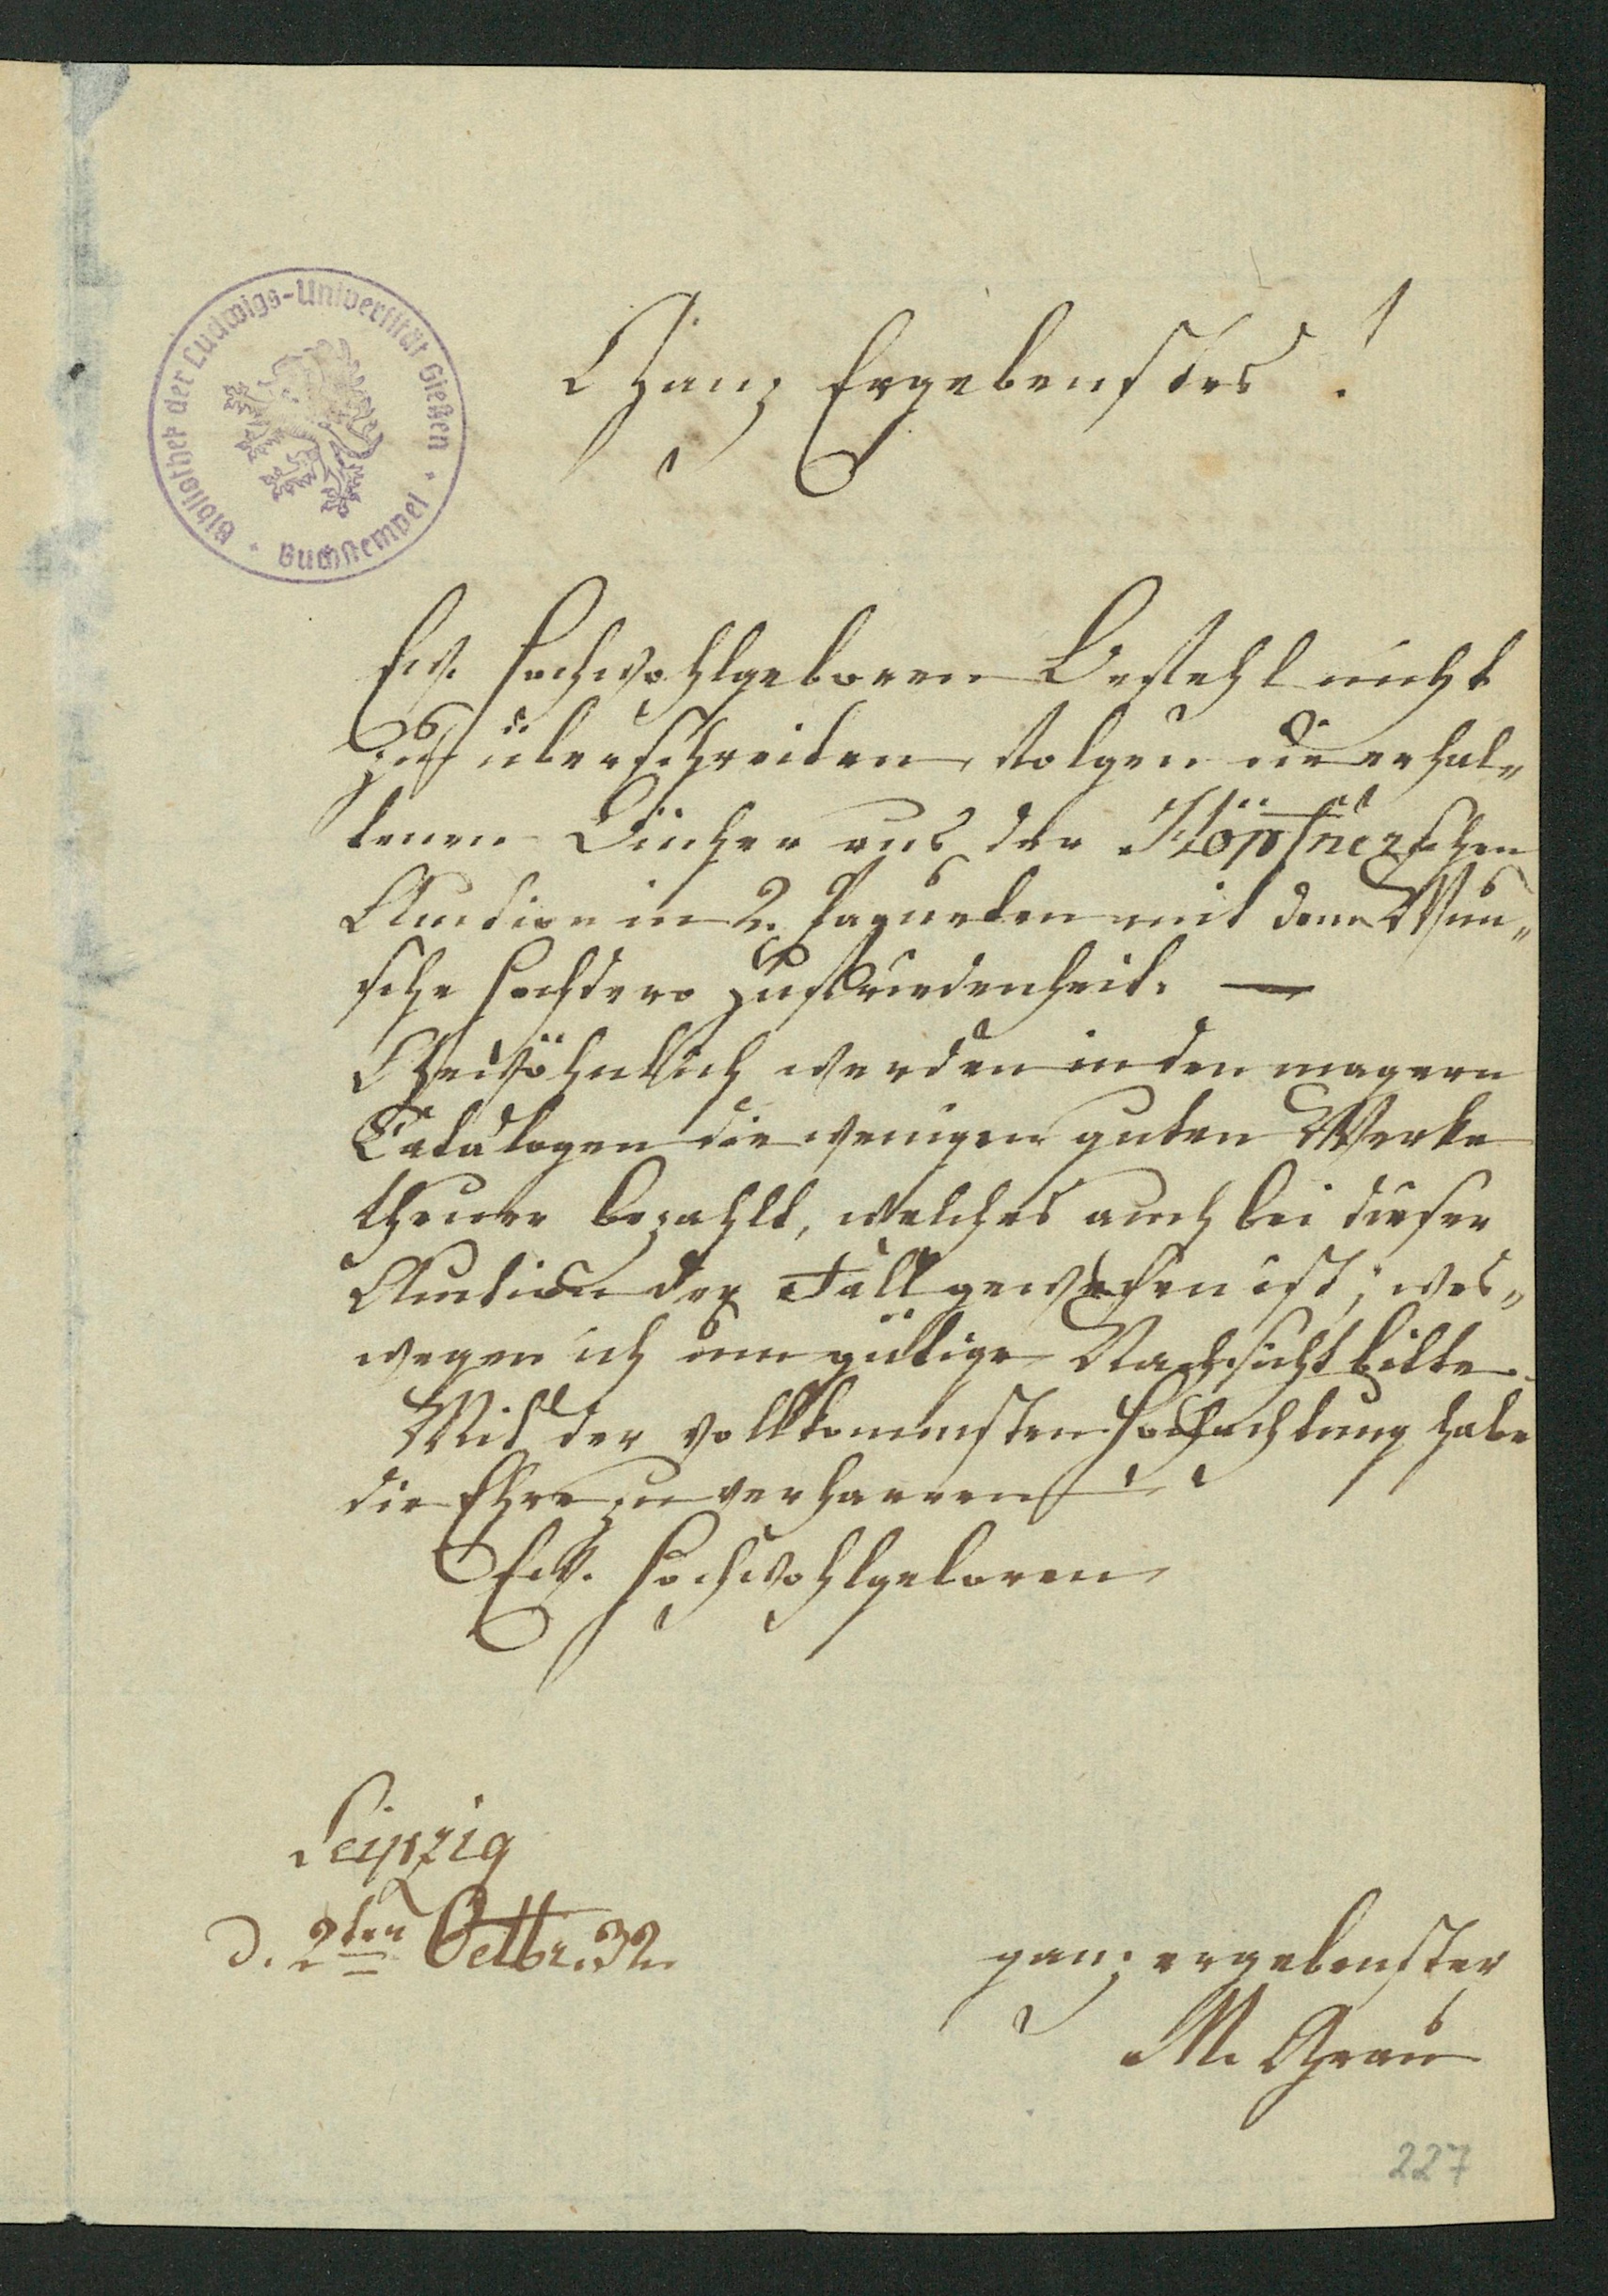 Bibliothek der Ludwigs-Universität Gießen
Buchstempel
Ganz Ergebenstes!
Ew. Hochwohlgeboren Befehl nicht
zu überschreiten, folgen die erhal„
tenen Bücher aus der Höpfnerschen
Auction in 2. Paqueten mit dem Wun„
sche Hochdero Zufriedenheit. —
Gewöhnlich werden in den magern
Catalogen die wenigen guten Werke
theuer bezahlt, welches auch bei dieser
Auction der Fall gewesen ist; wes„
wegen ich um gütige Nachsicht bitte.
Mit der vollkommensten Hochachtung habe
die Ehre zu verharren
Ew. Hochwohlgeboren
Leipzig
d. 2ten Octbr. 32.
ganz ergebenster
M. Grau
227